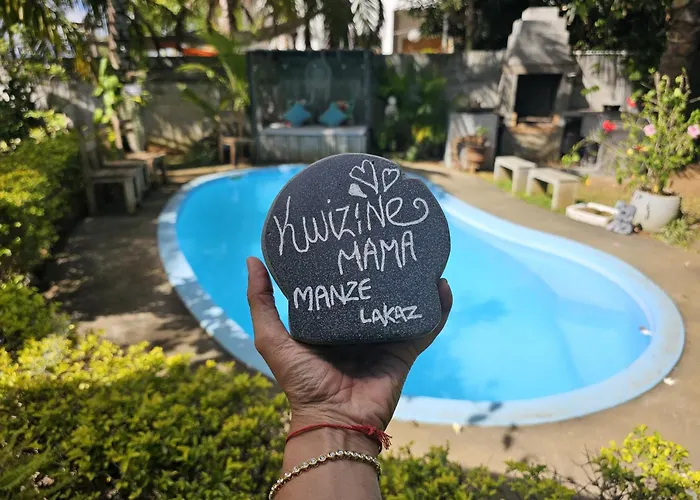 KWIZINE
MAMA
MANZE
LAKAZ